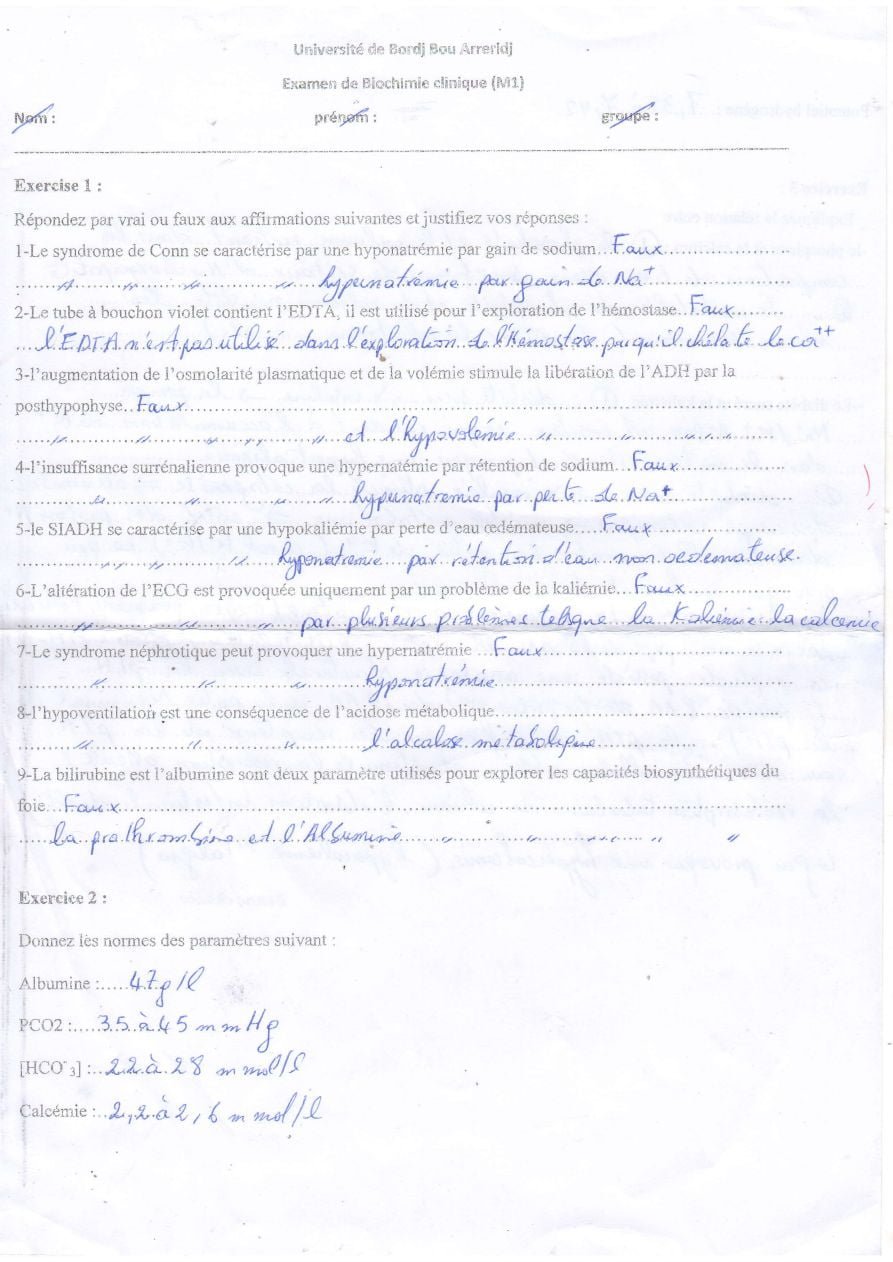 Université de Bordj Bou Arreridj
Examen de Biochimie clinique (M1)
Nom : prénom : groupe :
Exercise 1 :
Répondez par vrai ou faux aux affirmations suivantes et justifiez vos réponses :
1-Le syndrome de Conn se caractérise par une hyponatrémie par gain de sodium...Faux
" " " " hypernatrémie par gain de Na⁺
2-Le tube à bouchon violet contient l'EDTA, il est utilisé pour l'exploration de l'hémostase..Faux
l'EDTA n'est pas utilisé dans l'exploration de l'Hémostase puqu'il chélate le ca⁺⁺
3-l'augmentation de l'osmolarité plasmatique et de la volémie stimule la libération de l'ADH par la
posthypophyse..Faux
" " " " et l'hypovolémie " " "
4-l'insuffisance surrénalienne provoque une hypernatémie par rétention de sodium...Faux
" " " hyponatremie par perte de Na⁺
5-le SIADH se caractérise par une hypokaliémie par perte d'eau œdémateuse....Faux
" " " hyponatremie par rétention d'eau non oedemateuse.
6-L'altération de l'ECG est provoquée uniquement par un problème de la kaliémie...Faux
" " " par plusieurs problèmes telsque la Kaliémie, la calcemie
7-Le syndrome néphrotique peut provoquer une hypernatrémie ...Faux
" " " hyponatrémie
8-l'hypoventilation est une conséquence de l'acidose métabolique
" " " l'alcalose métabologique
9-La bilirubine est l'albumine sont deux paramètre utilisés pour explorer les capacités biosynthétiques du
foie...Faux
la prothrombine et l'Albumine " " " " "
Exercice 2 :
Donnez les normes des paramètres suivant :
Albumine :.....47g/l
PCO2 :....35 à 45 mmHg
[HCO⁻₃] :..22 à 28 mmol/l
Calcémie :..2,2 à 2,6 mmol/l